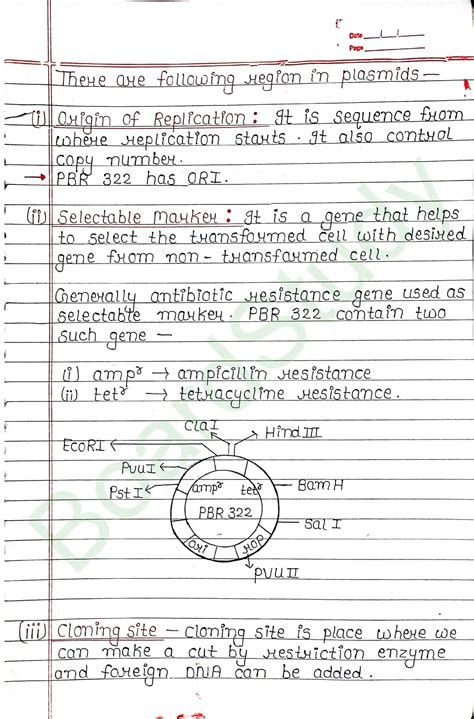 Date
Page
There are following region in plasmids —
(i) Origin of Replication : It is sequence from
where replication starts. It also control
copy number.
→ PBR 322 has ORI.
(ii) Selectable Marker : It is a gene that helps
to select the transformed cell with desired
gene from non-transformed cell.
Generally antibiotic resistance gene used as
selectable marker. PBR 322 contain two
such gene —
(i) ampʳ → ampicillin resistance
(ii) tetʳ → tetracycline resistance.
ClaI
Hind III
EcoRI
PvuI
Pst I
ampʳ
tetʳ
BamH
PBR 322
Sal I
ori
rop
PVUII
(iii) Cloning site — Cloning site is place where we
can make a cut by restriction enzyme
and foreign DNA can be added.
BoardStudy